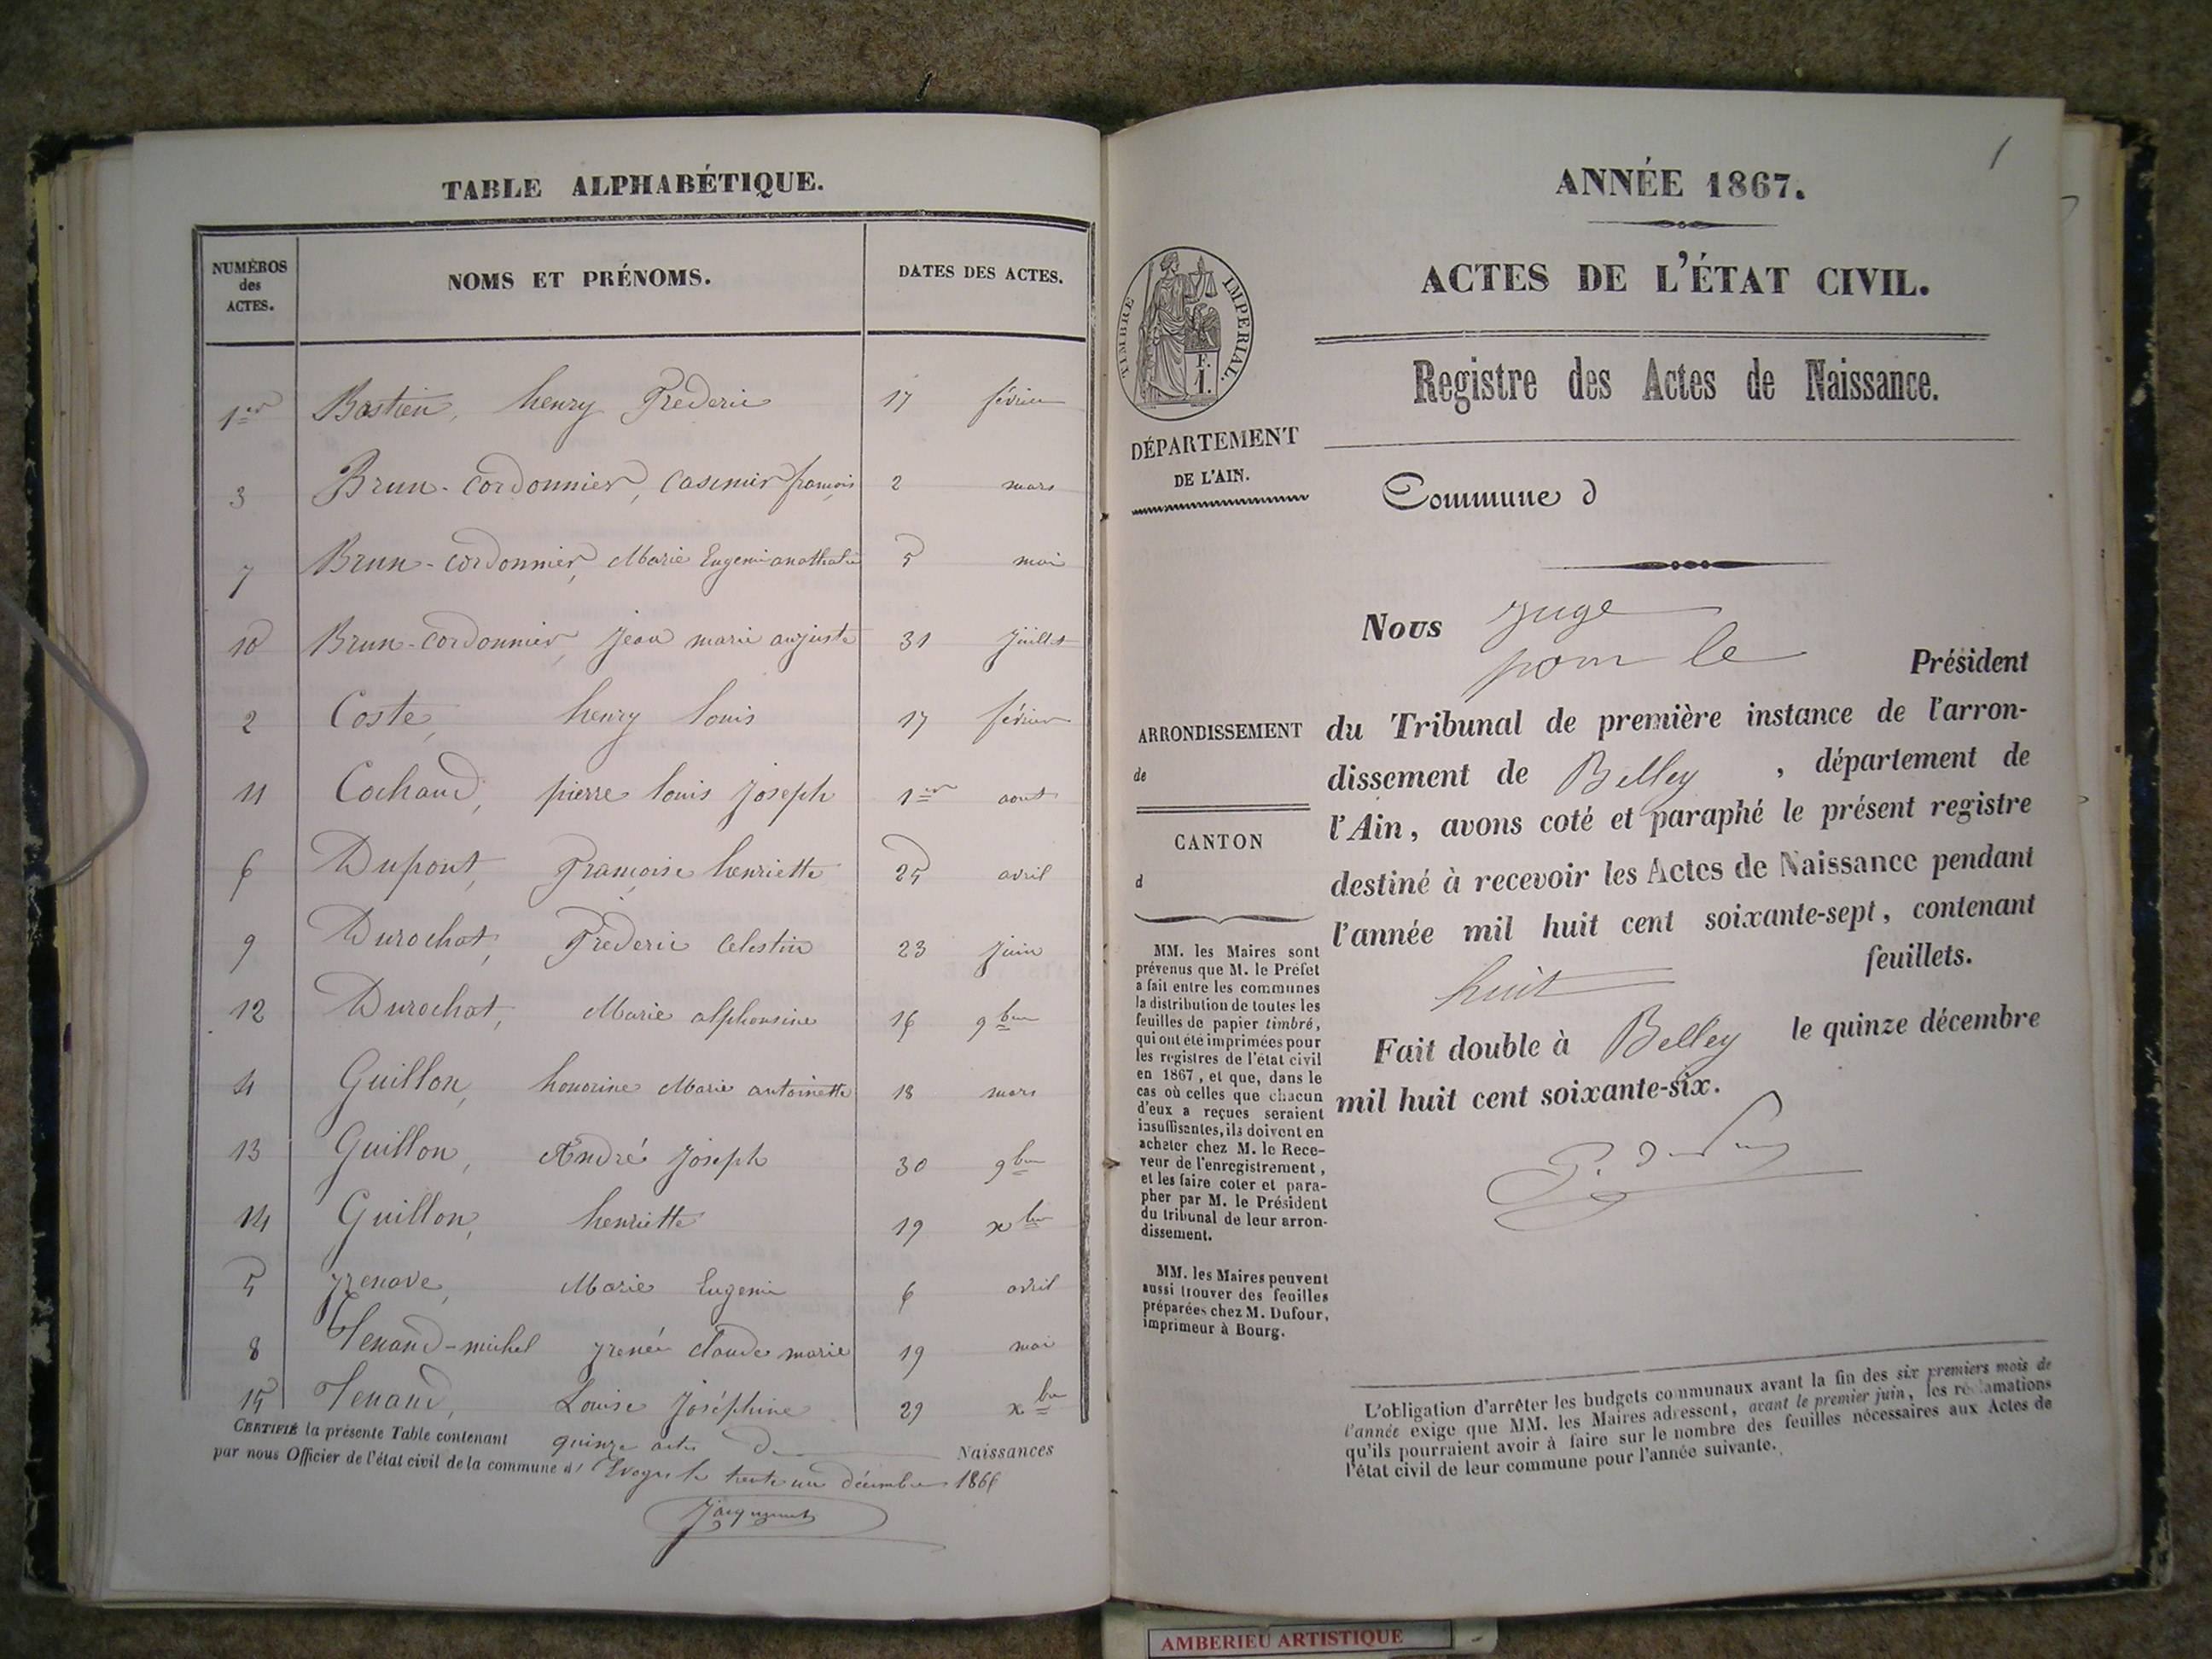 TABLE ALPHABÉTIQUE.
NUMÉROS
des
ACTES.
NOMS ET PRÉNOMS.
DATES DES ACTES.
1er Bastien, henry Frederic 17 février
3 Brun-cordonnier, Casimir françois 2 mars
7 Brun-cordonnier, Marie Eugenie 5 mai
10 Brun-cordonnier, Jean marie auguste 31 Juillet
2 Coste, henry louis 17 février
11 Cochaud, pierre louis Joseph 1er aout
6 Dupont, Françoise henriette 25 avril
9 Durochat, Frederic Celestin 23 Juin
12 Durochat, Marie alphonsine 16 9bre
4 Guillon, honorine Marie antoinette 18 mars
13 Guillon, André Joseph 30 9bre
14 Guillon, henriette 19 xbre
5 Marie Eugenie 6 avril
8 Tenand-michel claude marie 19 mai
15 Tenand, Louise Joséphine 29 xbre
CERTIFIÉ la présente Table contenant quinze actes de Naissances
par nous Officier de l'état civil de la commune d' le trente un décembre 1866
ANNÉE 1867.
1
ACTES DE L'ÉTAT CIVIL.
TIMBRE IMPERIAL.
F.
1.
Registre des Actes de Naissance.
DÉPARTEMENT
DE L'AIN.
Commune d
Nous Juge
pour le Président
ARRONDISSEMENT
de
du Tribunal de première instance de l'arron-
dissement de Belley, département de
l'Ain, avons coté et paraphé le présent registre
CANTON
d
destiné à recevoir les Actes de Naissance pendant
l'année mil huit cent soixante-sept, contenant
huit feuillets.
Fait double à Belley le quinze décembre
mil huit cent soixante-six.
MM. les Maires sont
prévenus que M. le Préfet
a fait entre les communes
la distribution de toutes les
feuilles de papier timbré,
qui ont été imprimées pour
les registres de l'état civil
en 1867, et que, dans le
cas où celles que chacun
d'eux a reçues seraient
insuffisantes, ils doivent en
acheter chez M. le Rece-
veur de l'enregistrement,
et les faire coter et para-
pher par M. le Président
du tribunal de leur arron-
dissement.
MM. les Maires peuvent
aussi trouver des feuilles
préparées chez M. Dufour,
imprimeur à Bourg.
L'obligation d'arrêter les budgets communaux avant la fin des six premiers mois de
l'année exige que MM. les Maires adressent, avant le premier juin, les réclamations
qu'ils pourraient avoir à faire sur le nombre des feuilles nécessaires aux Actes de
l'état civil de leur commune pour l'année suivante.
AMBERIEU ARTISTIQUE